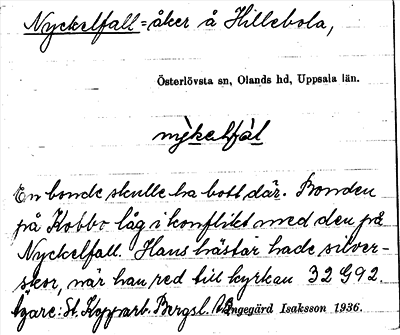 Nyckelfall=åker å Hillebola,
Österlövsta sn, Olands hd, Uppsala län.
nỳkelfàl
En bonde skulle ha bott där. Bonden
på Kobbo låg i konflikt med den på
Nyckelfall. Hans hästar hade silver-
skor, när han red till kyrkan 32 G 92.
Ägare: St. Kopparb. Bergsl. AB
Ingegärd Isaksson 1936.